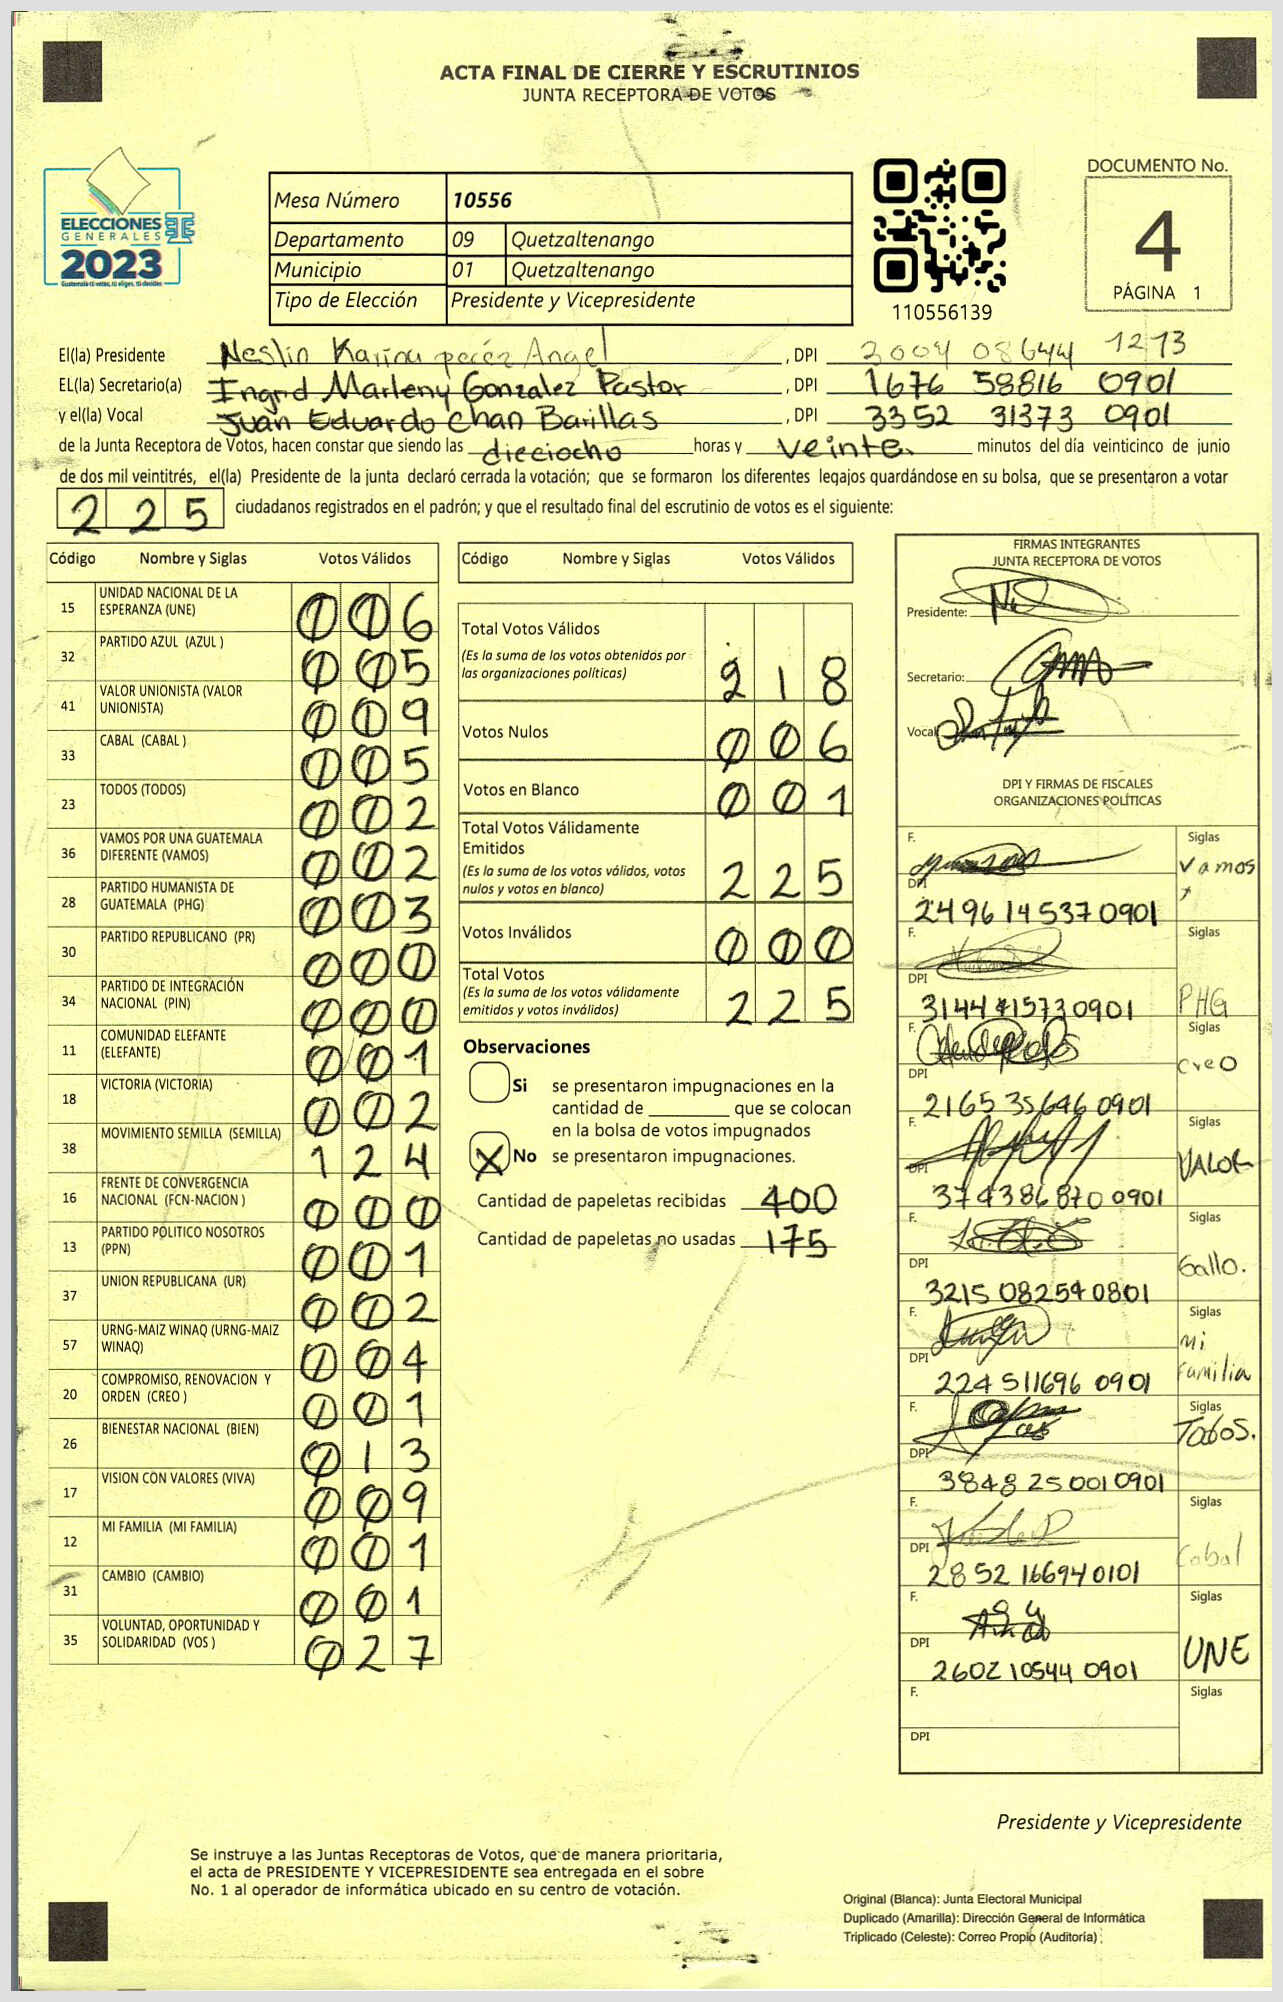 ACTA FINAL DE CIERRE Y ESCRUTINIOS
JUNTA RECEPTORA DE VOTOS
ELECCIONES
GENERALES
2023
Guatemala tú votas, tú eliges, tú decides
Mesa Número 10556
Departamento 09 Quetzaltenango
Municipio 01 Quetzaltenango
Tipo de Elección Presidente y Vicepresidente
110556139
DOCUMENTO No.
4
PÁGINA 1
El(la) Presidente Neslin Karina perez Angel , DPI 3004 08644 1213
EL(la) Secretario(a) Ingrid Marleny Gonzalez Pastor , DPI 1676 58816 0901
y el(la) Vocal Juan Eduardo Chan Barillas , DPI 3352 31373 0901
de la Junta Receptora de Votos, hacen constar que siendo las dieciocho horas y veinte minutos del día veinticinco de junio
de dos mil veintitrés, el(la) Presidente de la junta declaró cerrada la votación; que se formaron los diferentes legajos guardándose en su bolsa, que se presentaron a votar
225 ciudadanos registrados en el padrón; y que el resultado final del escrutinio de votos es el siguiente:
Código Nombre y Siglas Votos Válidos
15 UNIDAD NACIONAL DE LA ESPERANZA (UNE) 006
32 PARTIDO AZUL (AZUL ) 005
41 VALOR UNIONISTA (VALOR UNIONISTA) 009
33 CABAL (CABAL ) 005
23 TODOS (TODOS) 002
36 VAMOS POR UNA GUATEMALA DIFERENTE (VAMOS) 002
28 PARTIDO HUMANISTA DE GUATEMALA (PHG) 003
30 PARTIDO REPUBLICANO (PR) 000
34 PARTIDO DE INTEGRACIÓN NACIONAL (PIN) 000
11 COMUNIDAD ELEFANTE (ELEFANTE) 001
18 VICTORIA (VICTORIA) 002
38 MOVIMIENTO SEMILLA (SEMILLA) 124
16 FRENTE DE CONVERGENCIA NACIONAL (FCN-NACION ) 000
13 PARTIDO POLITICO NOSOTROS (PPN) 001
37 UNION REPUBLICANA (UR) 002
57 URNG-MAIZ WINAQ (URNG-MAIZ WINAQ) 004
20 COMPROMISO, RENOVACION Y ORDEN (CREO ) 001
26 BIENESTAR NACIONAL (BIEN) 013
17 VISION CON VALORES (VIVA) 009
12 MI FAMILIA (MI FAMILIA) 001
31 CAMBIO (CAMBIO) 001
35 VOLUNTAD, OPORTUNIDAD Y SOLIDARIDAD (VOS ) 027
Código Nombre y Siglas Votos Válidos
Total Votos Válidos 218
(Es la suma de los votos obtenidos por
las organizaciones políticas)
Votos Nulos 006
Votos en Blanco 001
Total Votos Válidamente
Emitidos 225
(Es la suma de los votos válidos, votos
nulos y votos en blanco)
Votos Inválidos 000
Total Votos 225
(Es la suma de los votos válidamente
emitidos y votos inválidos)
Observaciones
Si se presentaron impugnaciones en la
cantidad de ________ que se colocan
en la bolsa de votos impugnados
X No se presentaron impugnaciones.
Cantidad de papeletas recibidas 400
Cantidad de papeletas no usadas 175
FIRMAS INTEGRANTES
JUNTA RECEPTORA DE VOTOS
Presidente:
Secretario:
Vocal:
DPI Y FIRMAS DE FISCALES
ORGANIZACIONES POLÍTICAS
F. Siglas Vamos
DPI 2496 14537 0901
F. Siglas PHG
DPI 3144 41573 0901
F. Siglas Creo
DPI 2165 35646 0901
F. Siglas VALOR
DPI 3743 86870 0901
F. Siglas Gallo.
DPI 3215 08254 0801
F. Siglas mi familia
DPI 2245 11696 0901
F. Siglas Todos.
DPI 3848 25001 0901
F. Siglas Cabal
DPI 2852 16694 0101
F. Siglas UNE
DPI 2602 10544 0901
F. Siglas
DPI
Presidente y Vicepresidente
Se instruye a las Juntas Receptoras de Votos, que de manera prioritaria,
el acta de PRESIDENTE Y VICEPRESIDENTE sea entregada en el sobre
No. 1 al operador de informática ubicado en su centro de votación.
Original (Blanca): Junta Electoral Municipal
Duplicado (Amarilla): Dirección General de Informática
Triplicado (Celeste): Correo Propio (Auditoría)